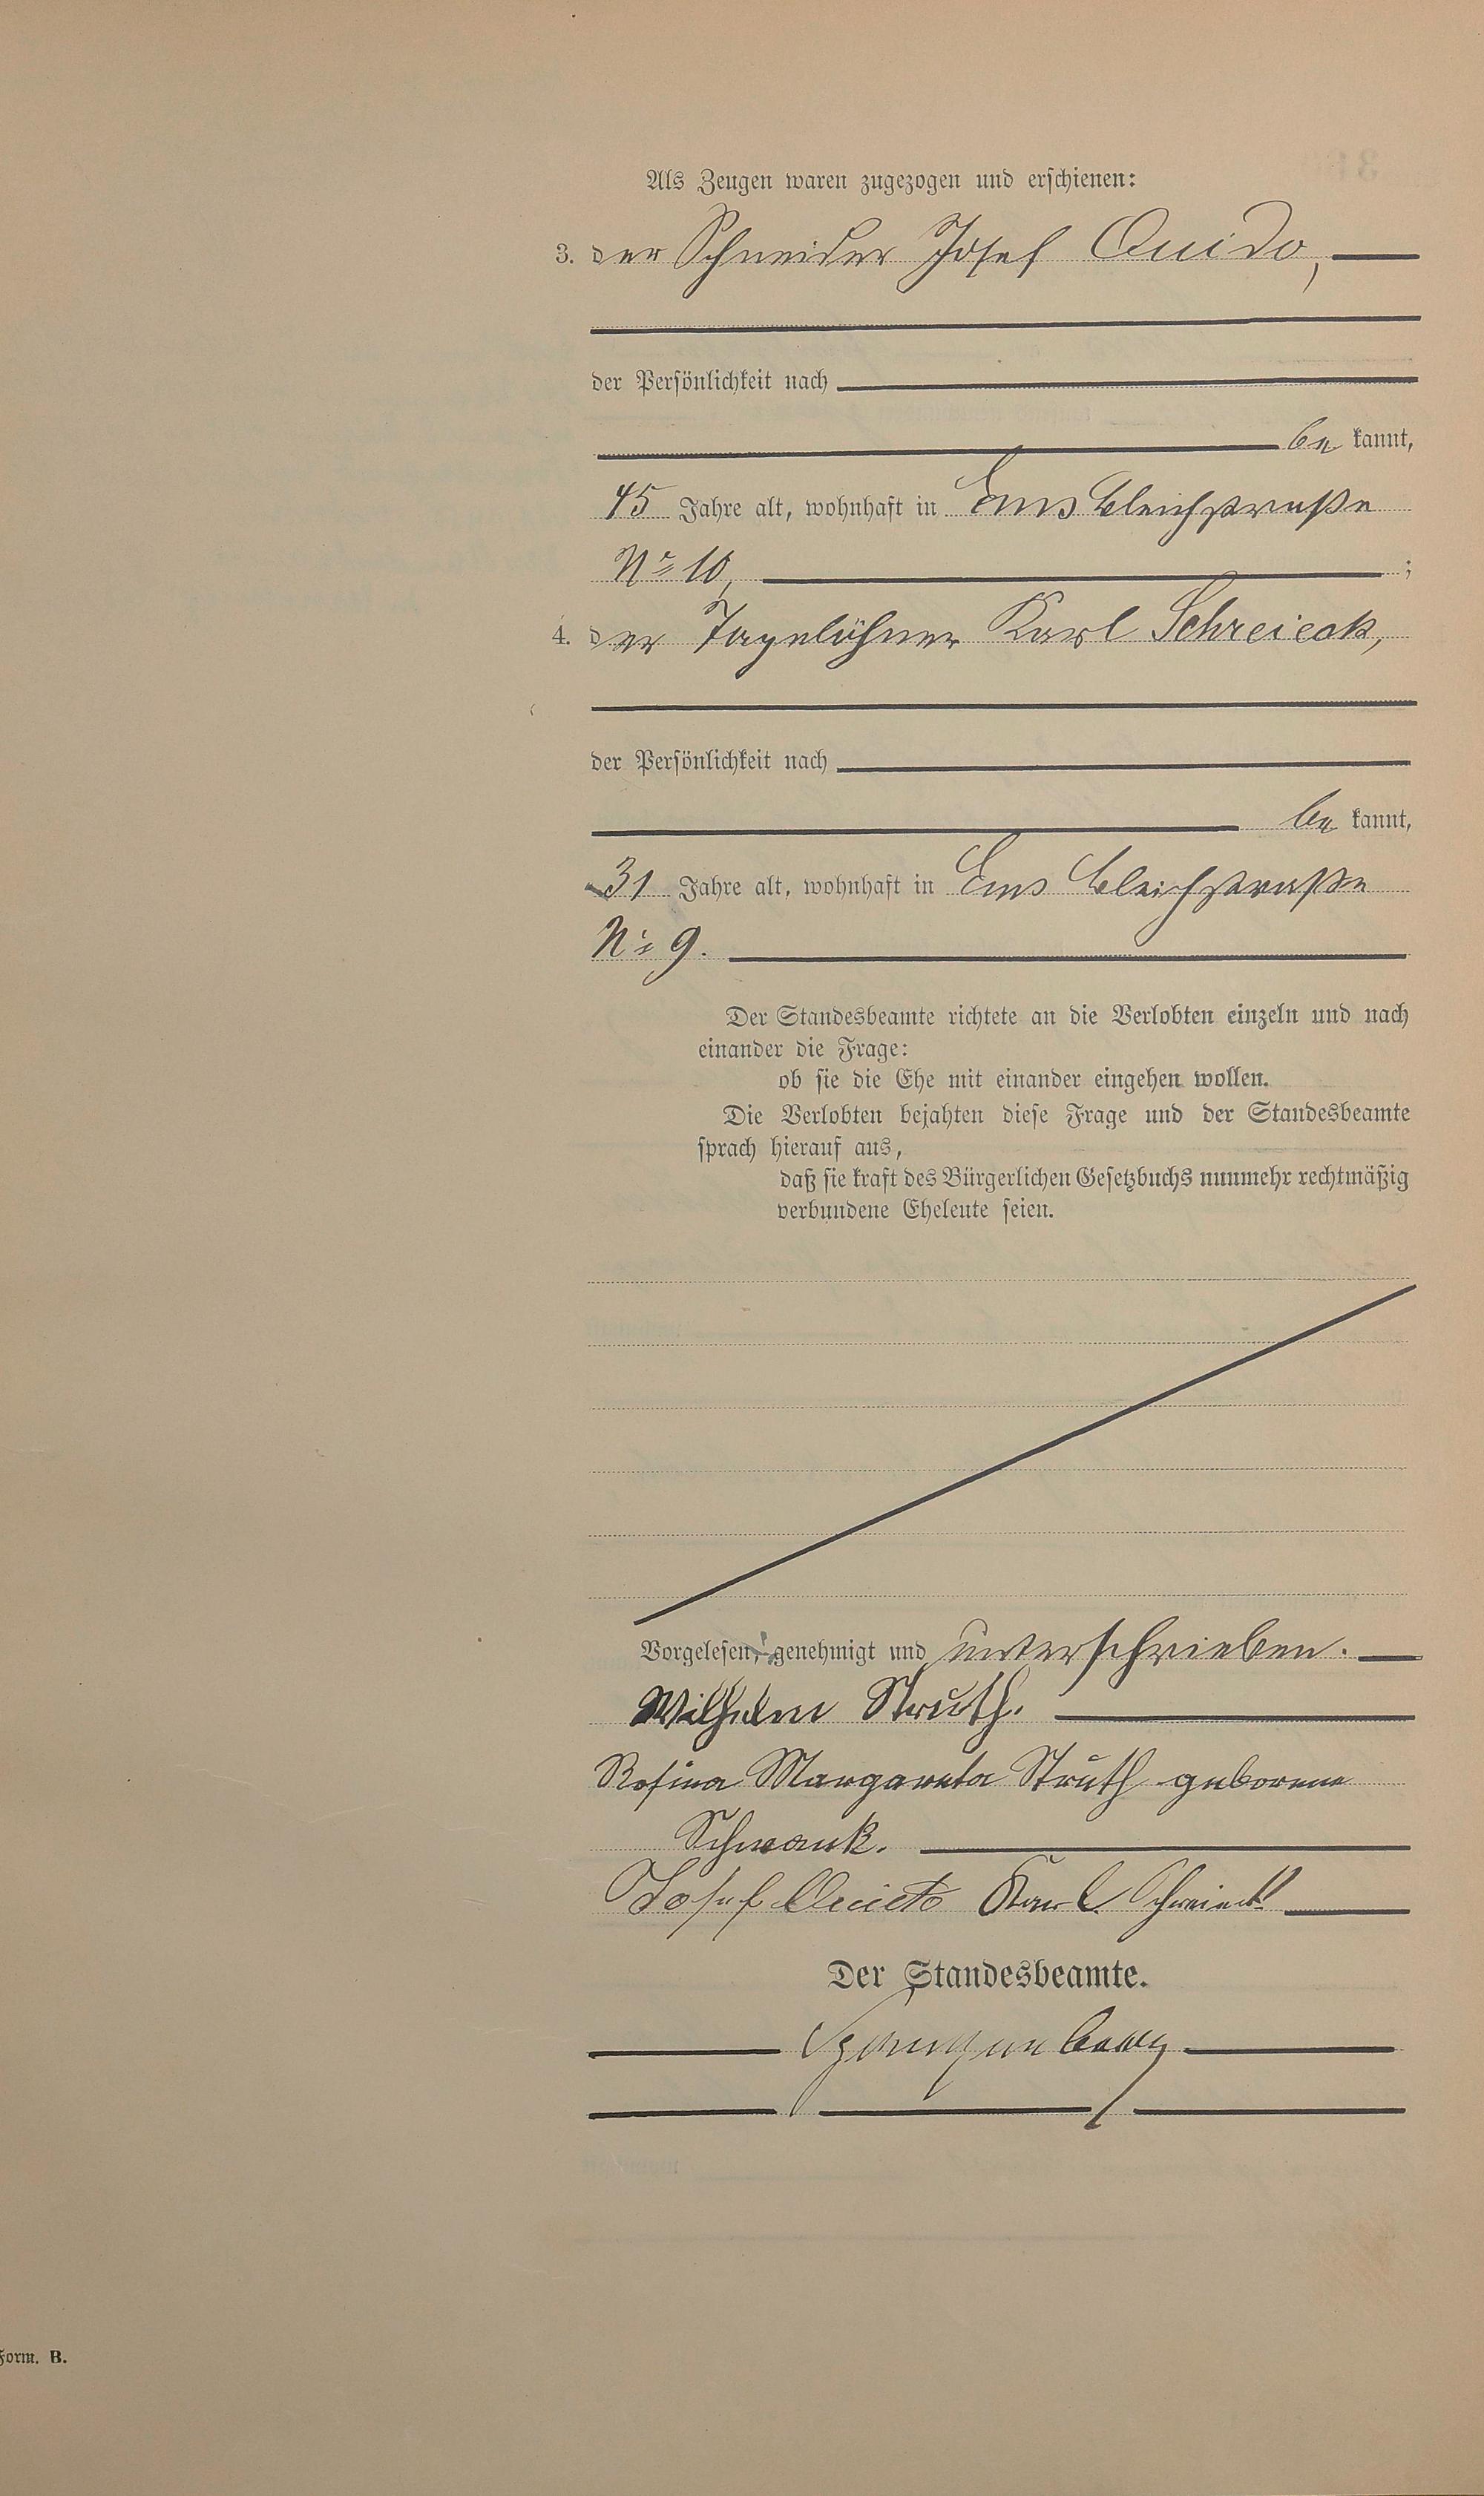 Als Zeugen waren zugezogen und erschienen:
3. der Schneider Josef Quido,
der Persönlichkeit nach
be kannt,
45 Jahre alt, wohnhaft in Ems Bleichstraße
No 10, ;
4. der Tagelöhner Karl Schreieck,
der Persönlichkeit nach
be kannt,
31 Jahre alt, wohnhaft in Ems Bleichstraße
No 9.
Der Standesbeamte richtete an die Verlobten einzeln und nach
einander die Frage:
ob sie die Ehe mit einander eingehen wollen.
Die Verlobten bejahten diese Frage und der Standesbeamte
sprach hierauf aus,
daß sie kraft des Bürgerlichen Gesetzbuchs nunmehr rechtmäßig
verbundene Eheleute seien.
Vorgelesen, genehmigt und unterschrieben.
Wilhelm Struth.
Rosina Margareta Struth geborene
Schwank.
Josef Karl Schreieck
Der Standesbeamte.
Form. B.